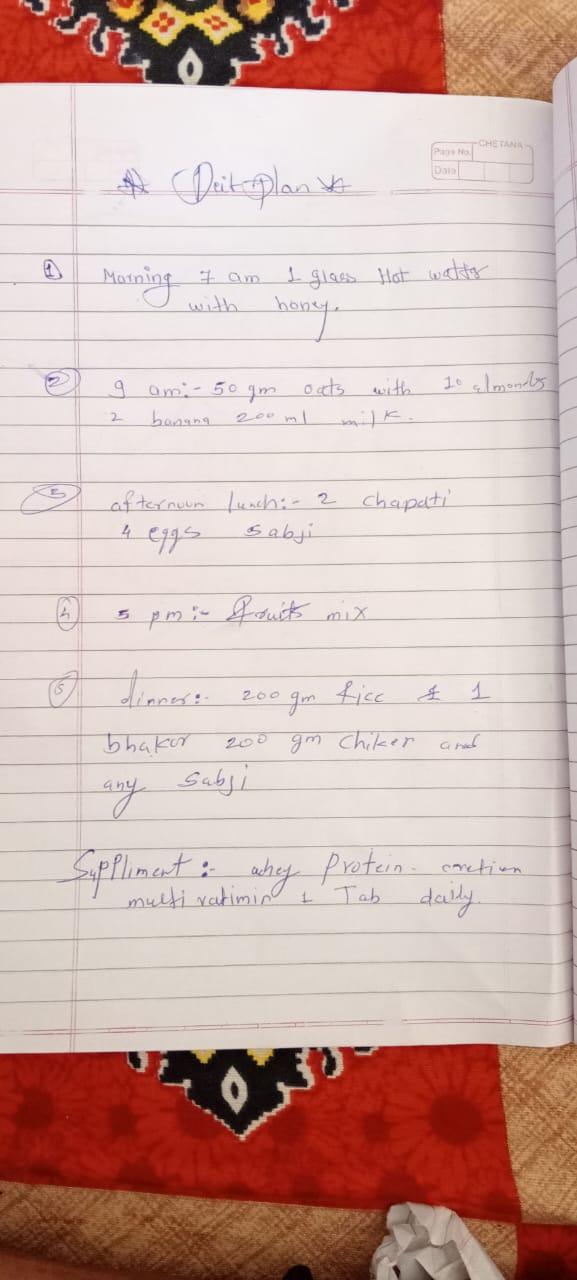 CHETANA
Page No.
Date
Deit Plan
1 Morning 7 am 1 glass Hot watter
with honey.
2 9 am:- 50 gm oats with 10 almonds
2 banana 200 ml milk.
3 afternoon lunch:- 2 chapati
4 eggs sabji
4 5 pm:- fruits mix
5 dinner:- 200 gm rice & 1
bhakor 200 gm chiken and
any sabji
Suppliment:- whey Protein.
multi vatimin 1 Tab daily.